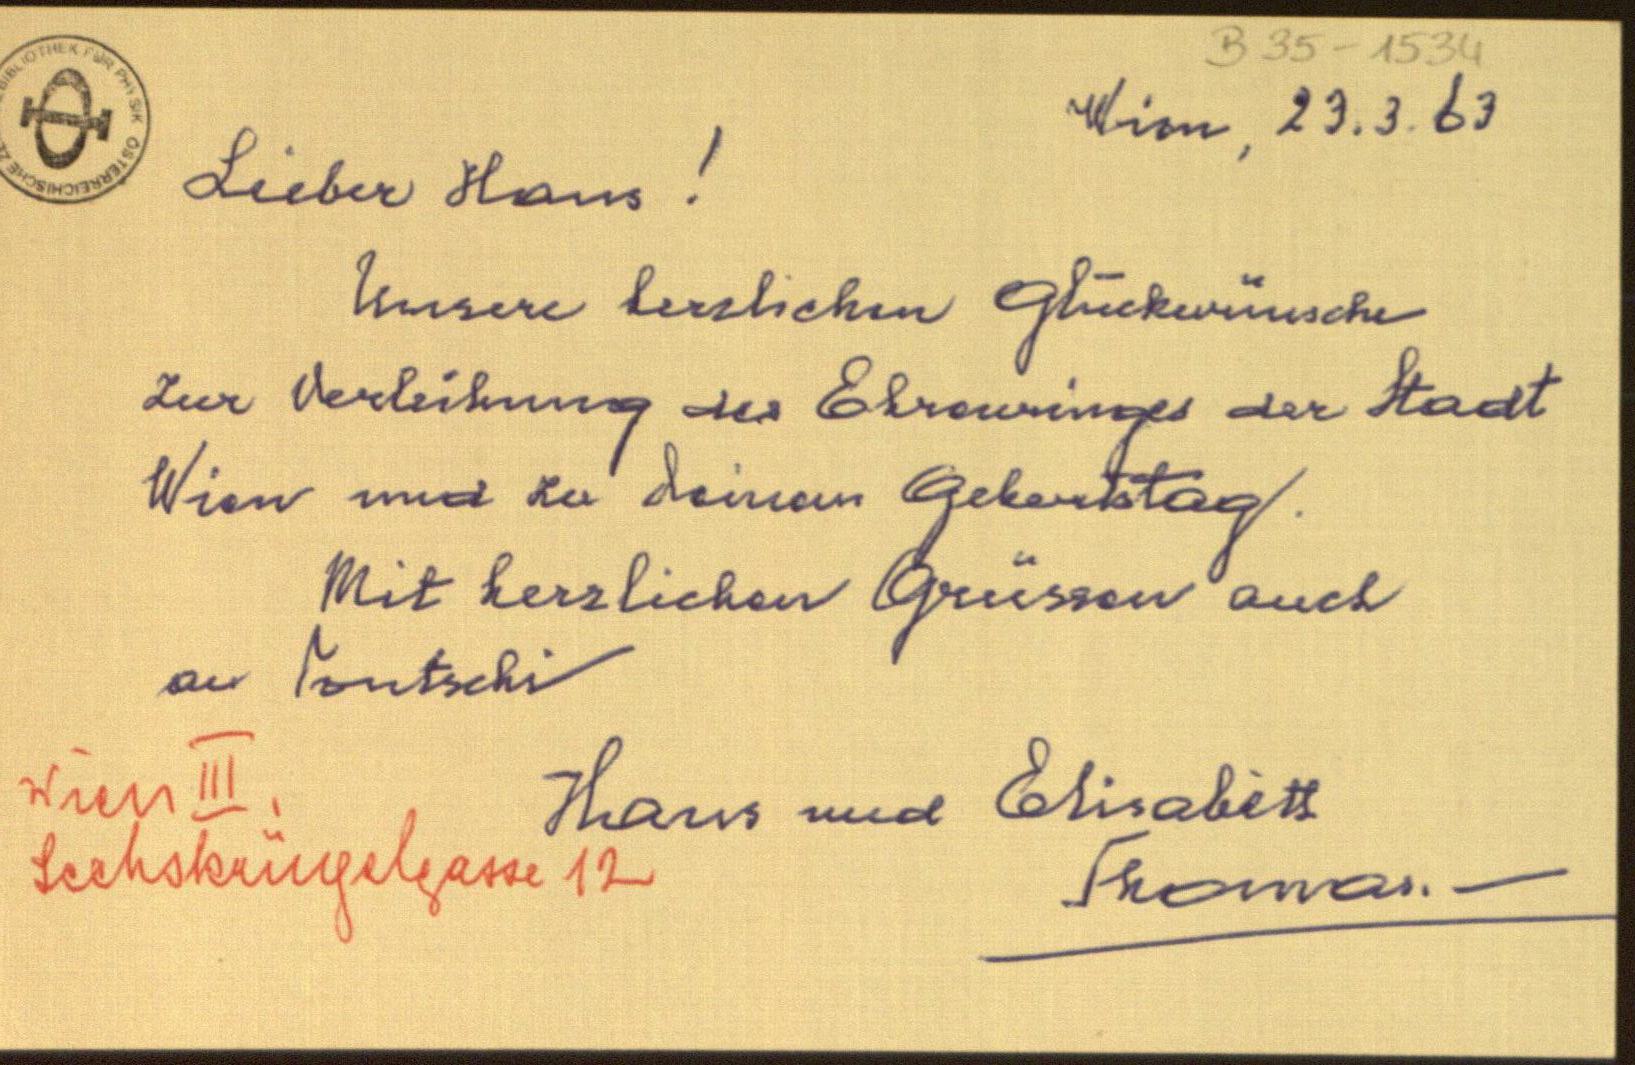 B 35-1534
ZENTRALBIBLIOTHEK FÜR PHYSIK ÖSTERREICHISCHE
Wien, 23.3.63
Lieber Hans!
Unsere herzlichen Glückwünsche
zur Verleihung des Ehrenringes der Stadt
Wien und zu deinem Geburtstag.
Mit herzlichen Grüssen auch
an Tontschi
Hans und Elisabeth
Thomas.
Wien III.
Sechskrügelgasse 12